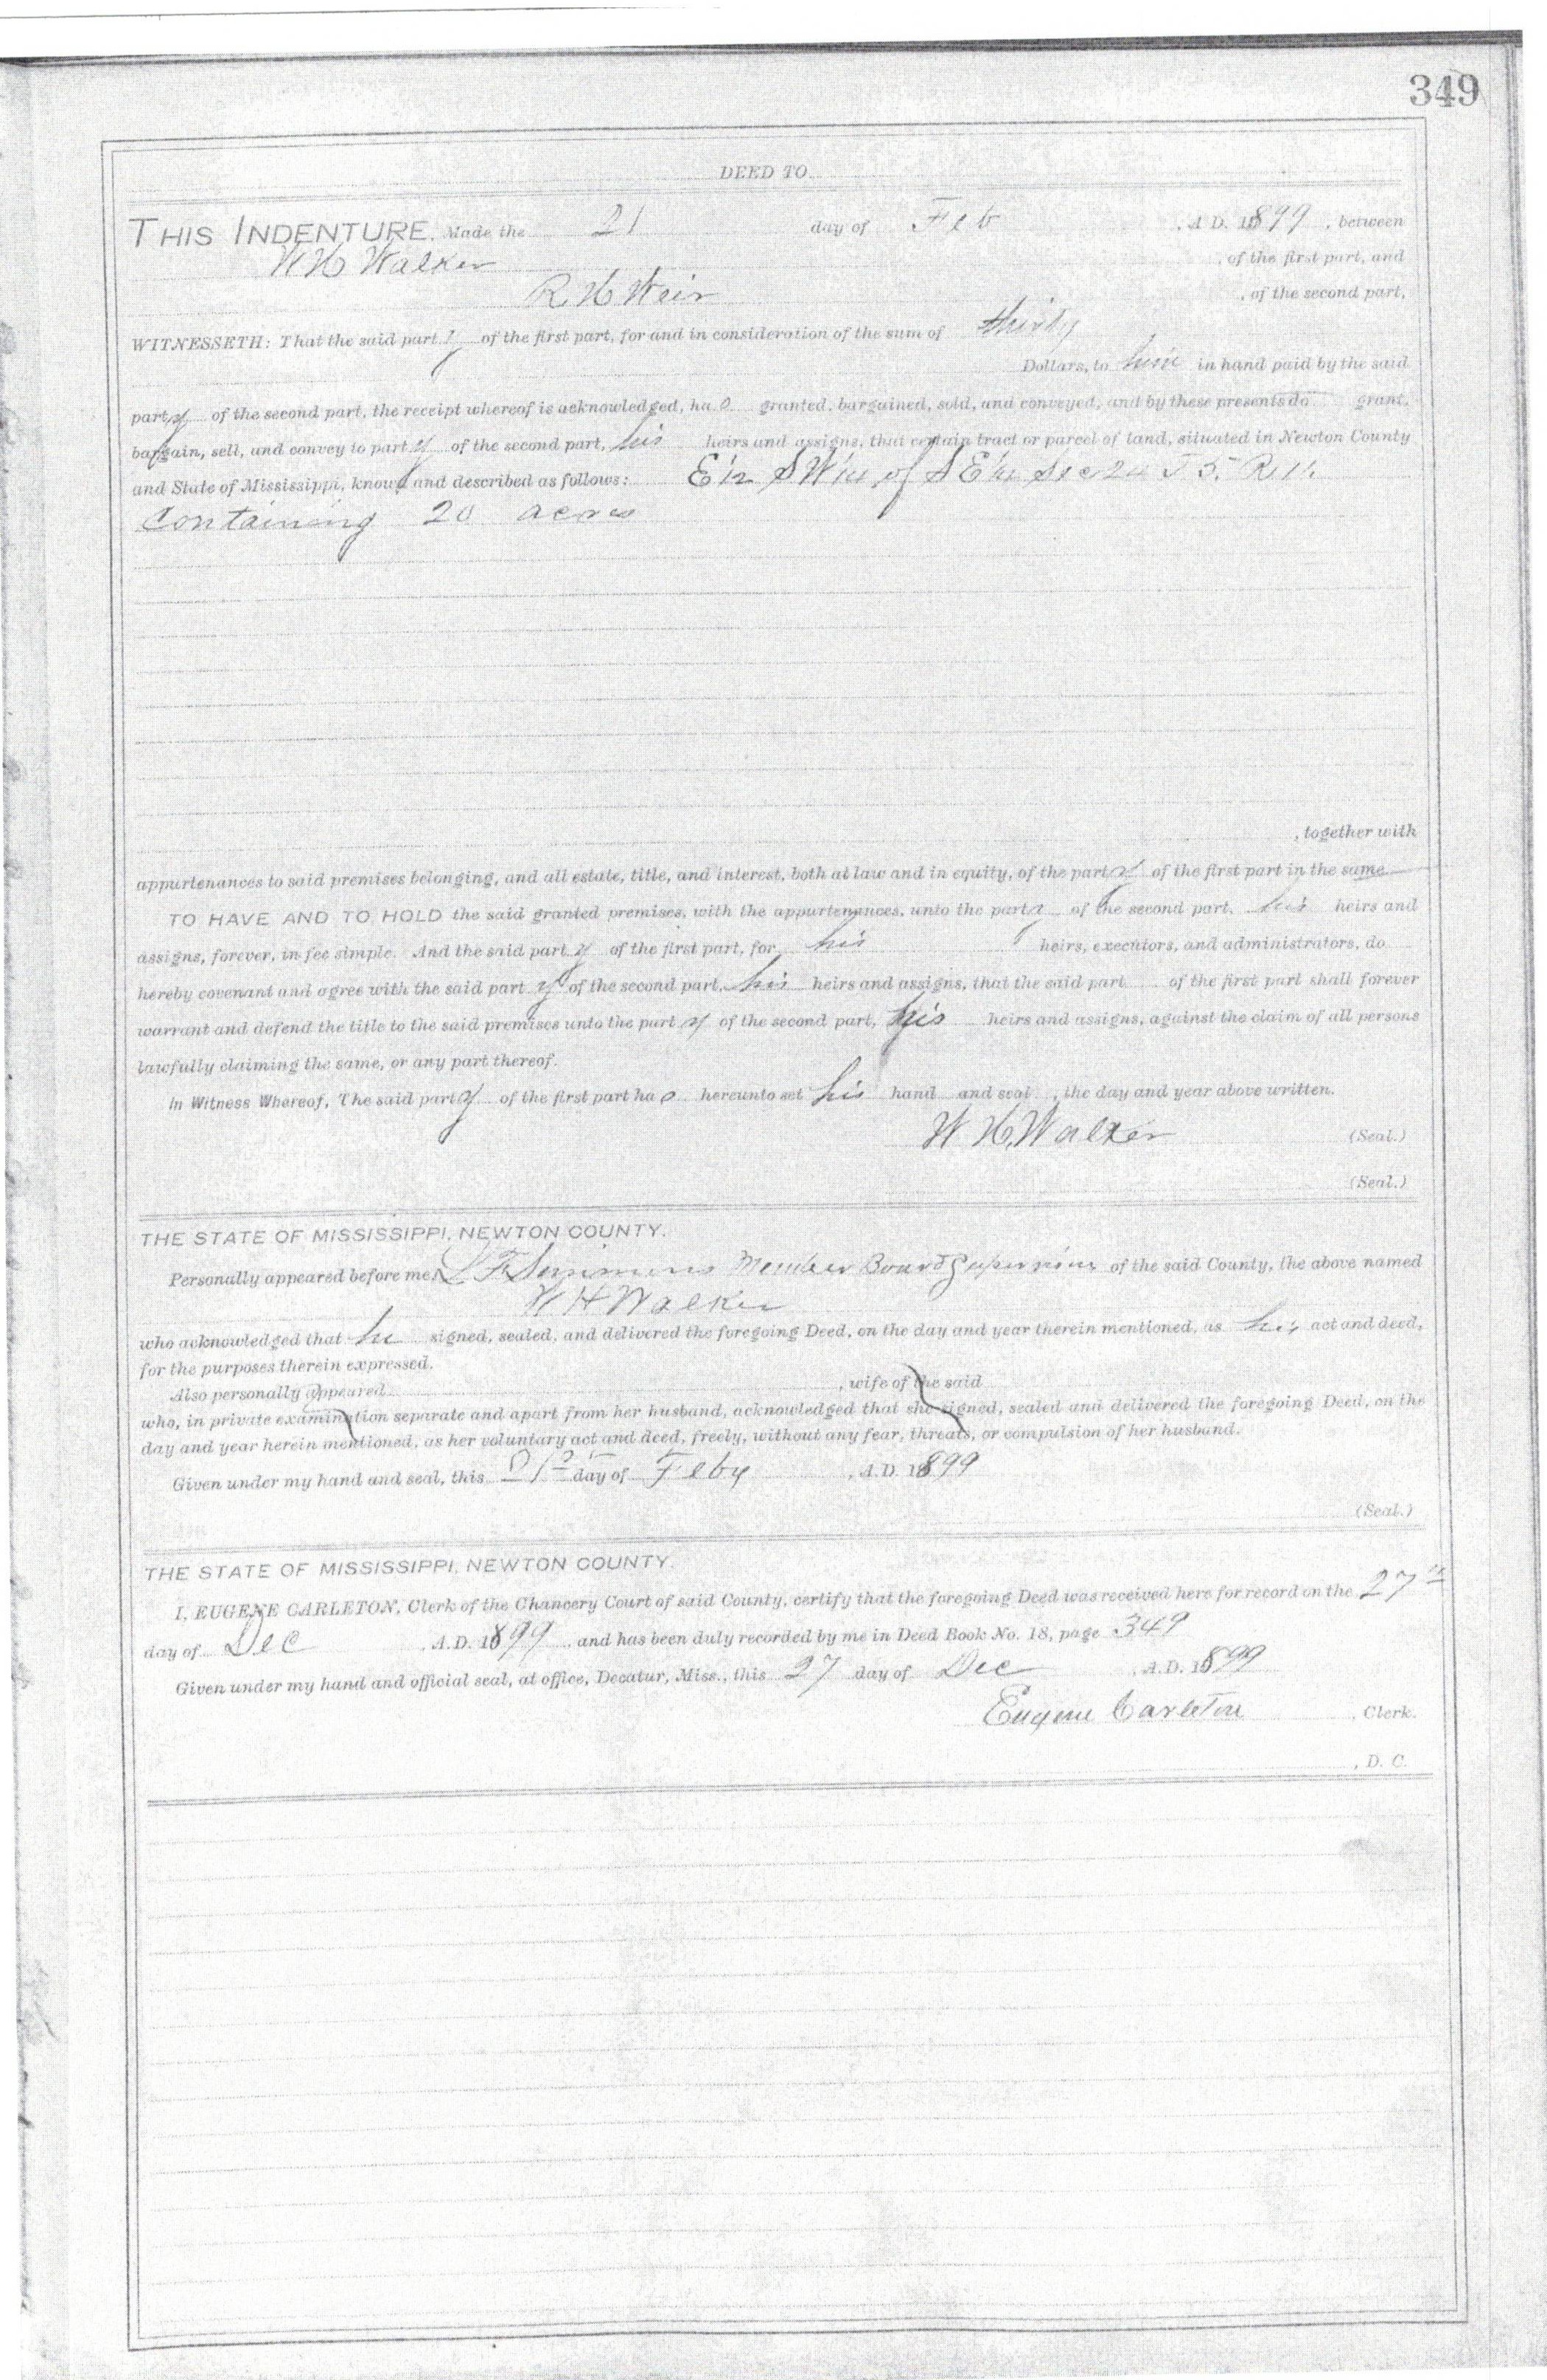 349
DEED TO
THIS INDENTURE, Made the 21 day of Feb , A. D. 1899 , between
W H Walker , of the first part, and
R. H Weir , of the second part,
WITNESSETH: That the said party of the first part, for and in consideration of the sum of thirty
Dollars, to him in hand paid by the said
party of the second part, the receipt whereof is acknowledged, has granted, bargained, sold, and conveyed, and by these presents do grant,
bargain, sell, and convey to party of the second part, his heirs and assigns, that certain tract or parcel of land, situated in Newton County
and State of Mississippi, known and described as follows: E1/2 SW1/4 of SE1/4 Sec 24 T 5. R 11.
Containing 20 acres
, together with
appurtenances to said premises belonging, and all estate, title, and interest, both at law and in equity, of the party of the first part in the same
TO HAVE AND TO HOLD the said granted premises, with the appurtenances, unto the party of the second part, his heirs and
assigns, forever, in fee simple. And the said party of the first part, for his heirs, executors, and administrators, do
hereby covenant and agree with the said party of the second part, his heirs and assigns, that the said part of the first part shall forever
warrant and defend the title to the said premises unto the party of the second part, his heirs and assigns, against the claim of all persons
lawfully claiming the same, or any part thereof.
In Witness Whereof, The said party of the first part has hereunto set his hand and seal , the day and year above written.
W H. Walker (Seal.)
(Seal.)
THE STATE OF MISSISSIPPI, NEWTON COUNTY.
Personally appeared before me, Member Board Supervisors of the said County, the above named
W H Walker
who acknowledged that he signed, sealed, and delivered the foregoing Deed, on the day and year therein mentioned, as his act and deed,
for the purposes therein expressed.
Also personally appeared , wife of the said
who, in private examination separate and apart from her husband, acknowledged that she signed, sealed and delivered the foregoing Deed, on the
day and year herein mentioned, as her voluntary act and deed, freely, without any fear, threats, or compulsion of her husband.
Given under my hand and seal, this day of Feby , A. D. 1899
(Seal.)
THE STATE OF MISSISSIPPI, NEWTON COUNTY.
I, EUGENE CARLETON, Clerk of the Chancery Court of said County, certify that the foregoing Deed was received here for record on the 27th
day of Dec , A. D. 1899 , and has been duly recorded by me in Deed Book No. 18, page 349
Given under my hand and official seal, at office, Decatur, Miss., this 27 day of Dec , A. D. 1899
Eugene Carleton , Clerk.
, D. C.